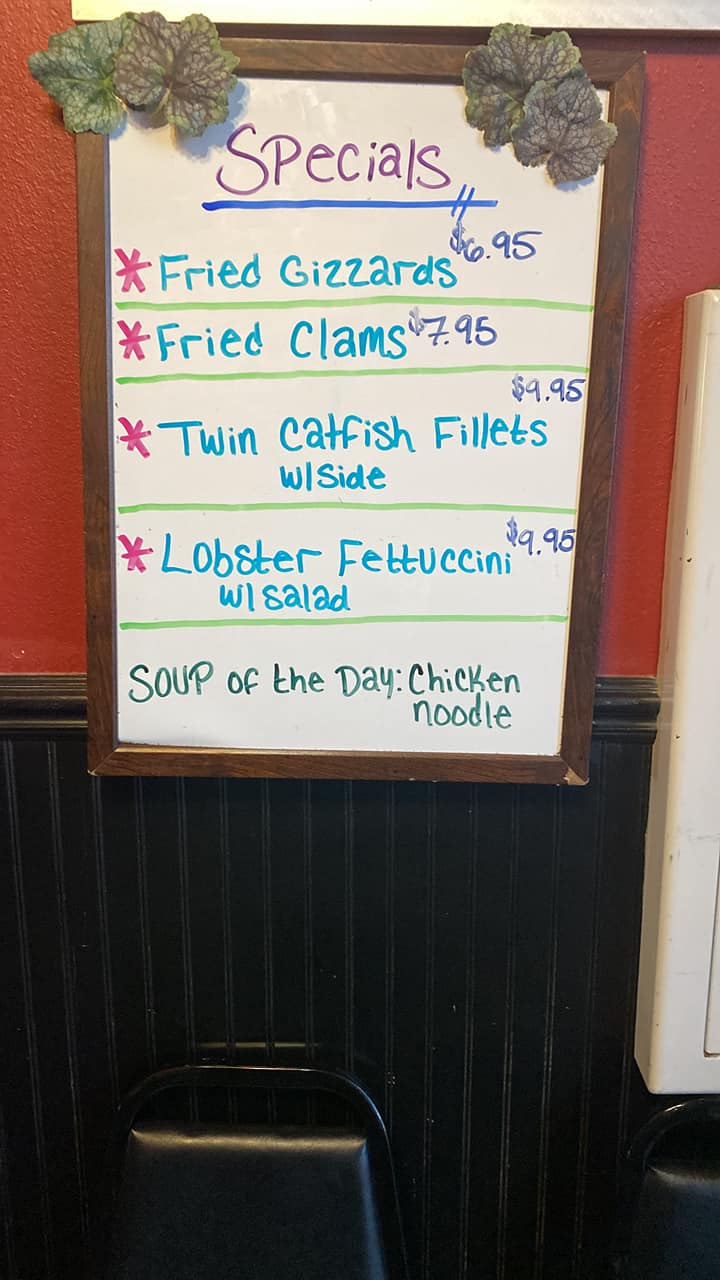 Specials
* Fried Gizzards $6.95
* Fried Clams $7.95
$9.95
* Twin Catfish Fillets
w/Side
* Lobster Fettuccini $9.95
w/Salad
Soup of the Day: Chicken
noodle